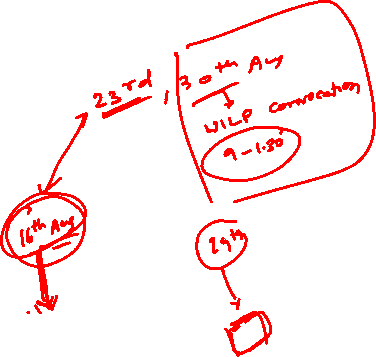 23rd, 30th Aug
WILP convocation
9-1.30
16th Aug
29th